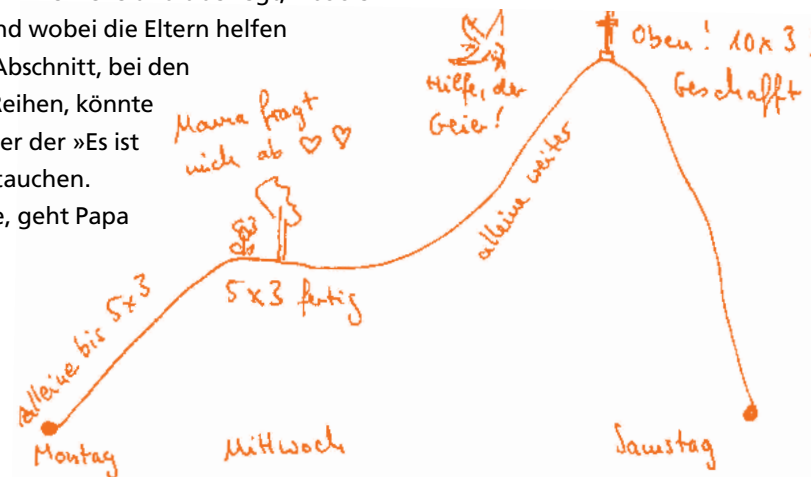 nd wobei die Eltern helfen
Abschnitt, bei den
Reihen, könnte
er der »Es ist
tauchen.
e, geht Papa
Mama fragt
mich ab ♡ ♡
Hilfe, der
Geier!
Oben! 10x3
Geschafft
alleine weiter
5x3 fertig
Alleine bis 5x3
Montag
Mittwoch
Samstag